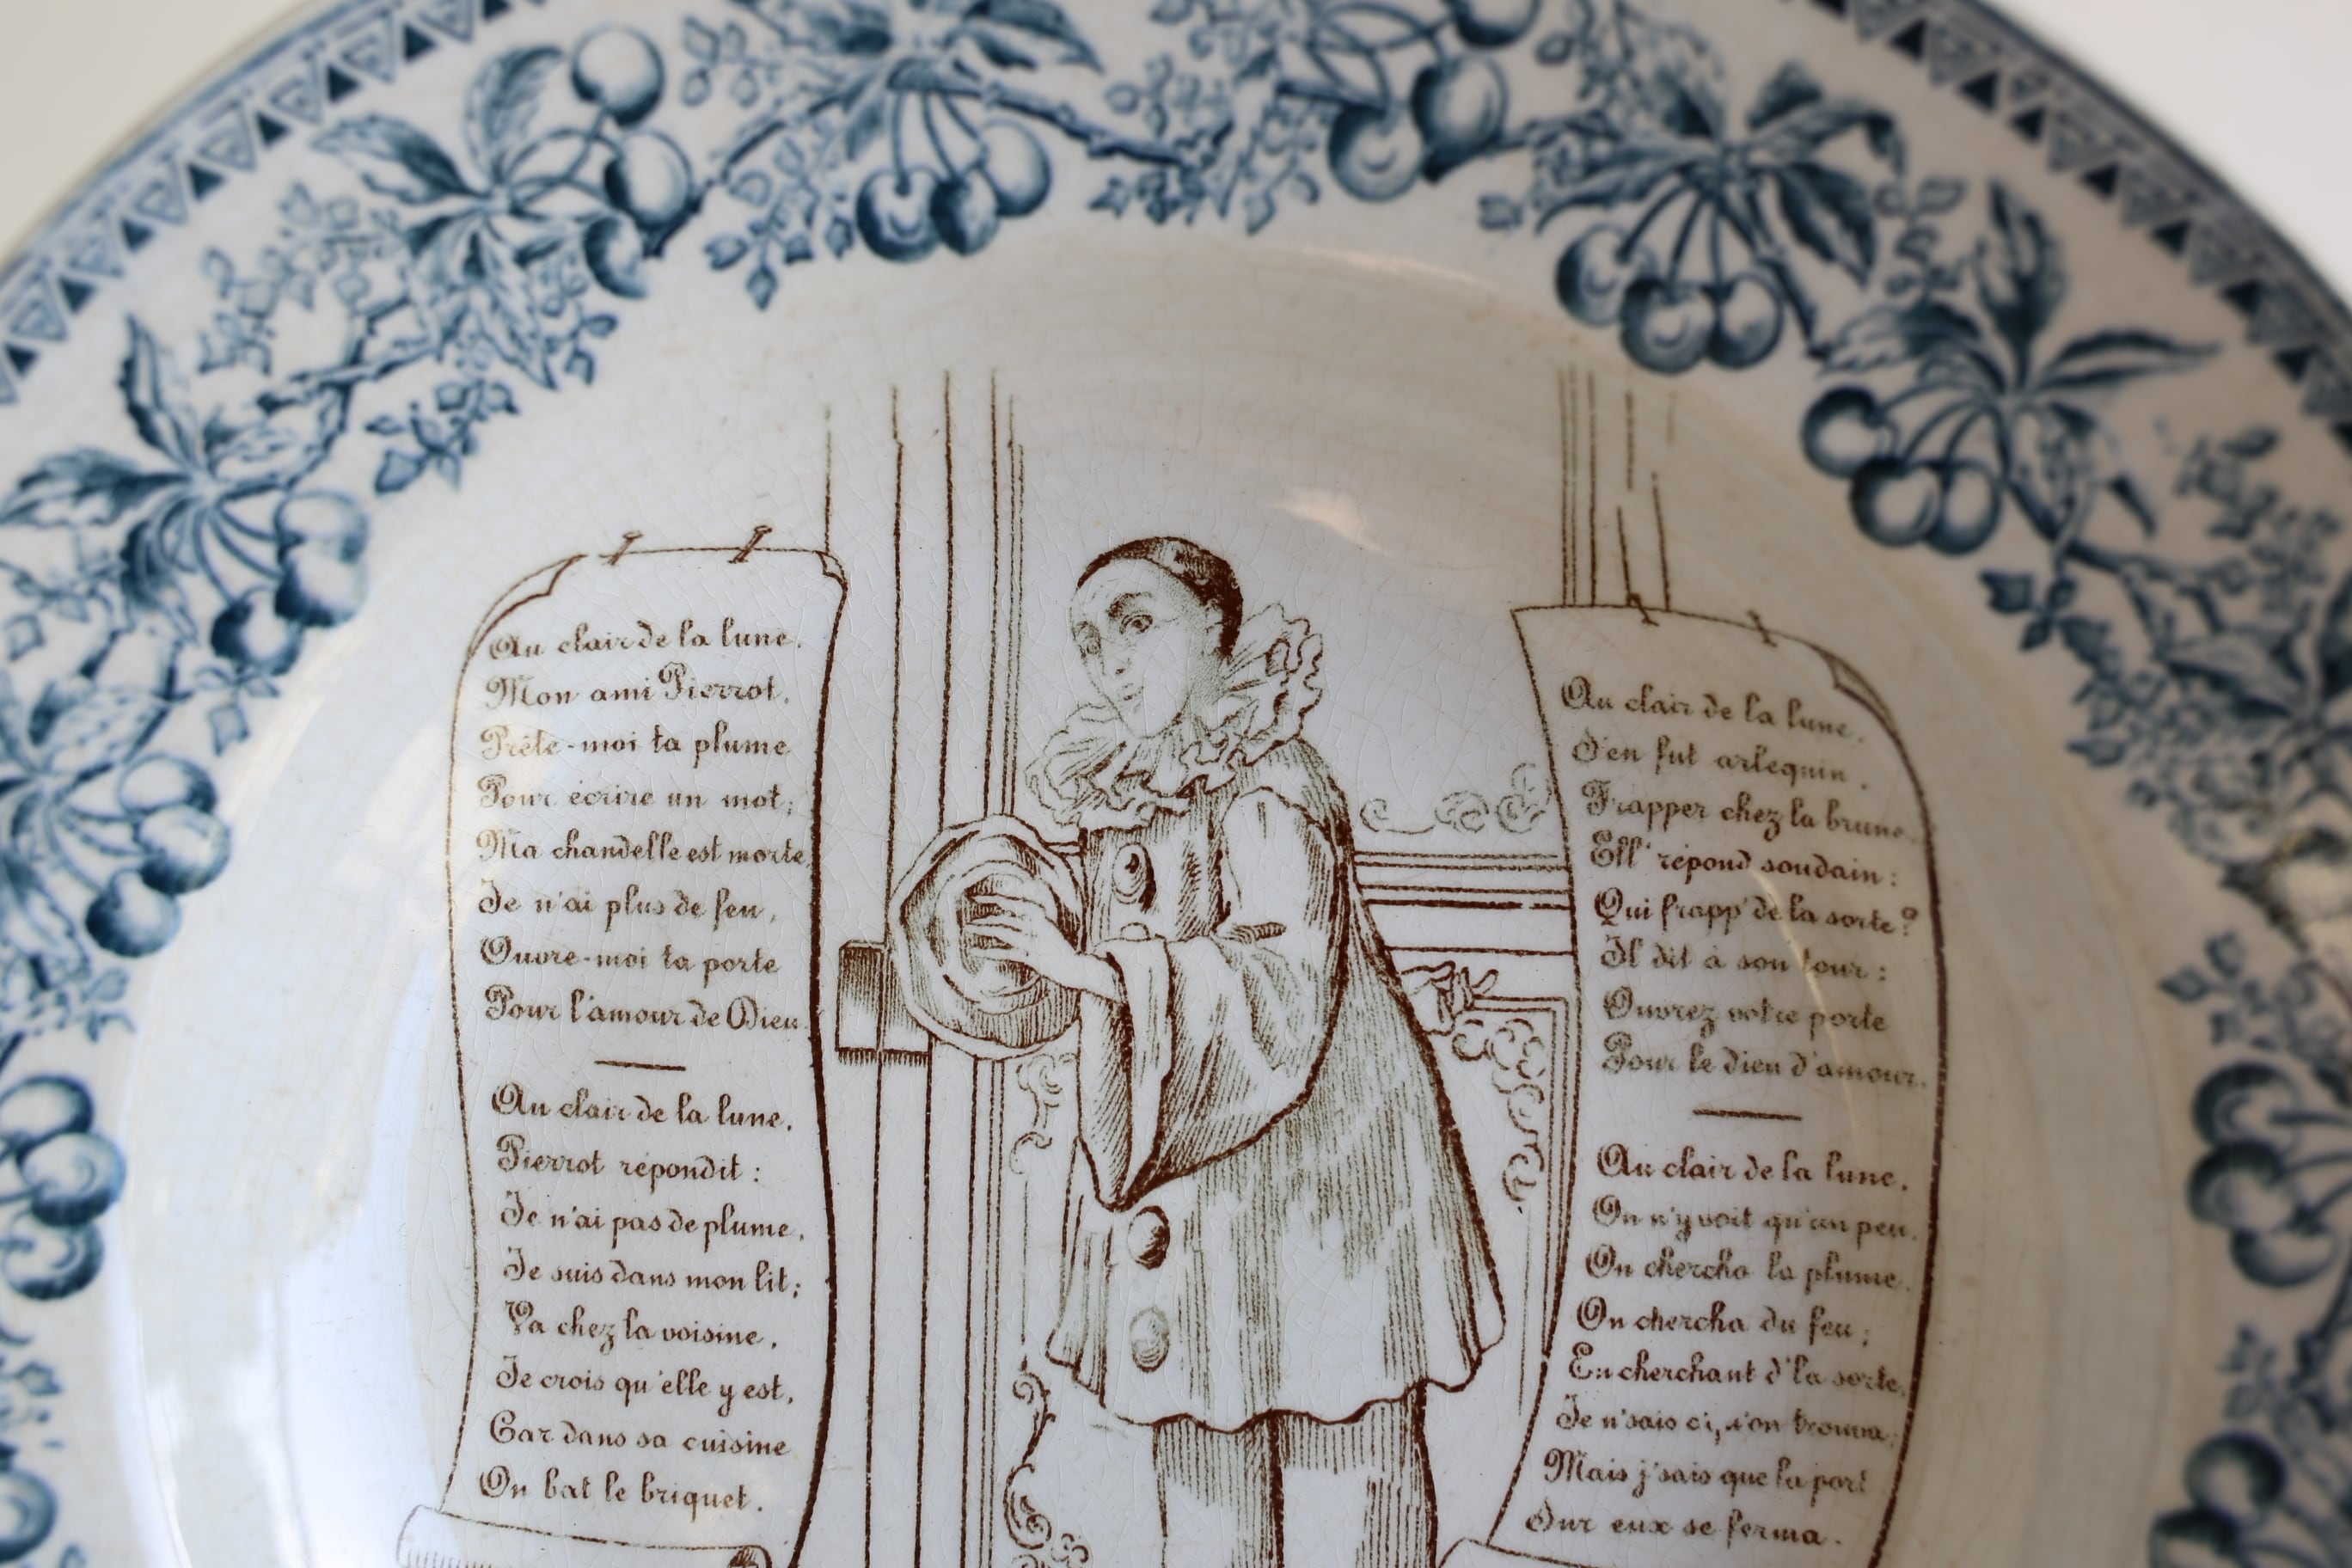 Au clair de la lune.
Mon ami Pierrot.
Prête-moi ta plume
Pour écrire un mot;
Ma chandelle est morte
Je n'ai plus de feu,
Ouvre-moi ta porte
Pour l'amour de Dieu
Au clair de la lune,
Pierrot répondit :
Je n'ai pas de plume,
Je suis dans mon lit;
Va chez la voisine,
Je crois qu'elle y est,
Car dans sa cuisine
On bat le briquet.
Au clair de la lune,
S'en fut arlequin,
Frapper chez la brune,
Ell' répond soudain :
Qui frapp' de la sorte?
Il dit à son tour :
Ouvrez votre porte
Pour le dieu d'amour.
Au clair de la lune,
On n'y voit qu'un peu,
On chercha la plume,
On chercha du feu;
En cherchant d'la sorte
Je n'sais c', qu'on trouva;
Mais j'sais que la port'
Sur eux se ferma.